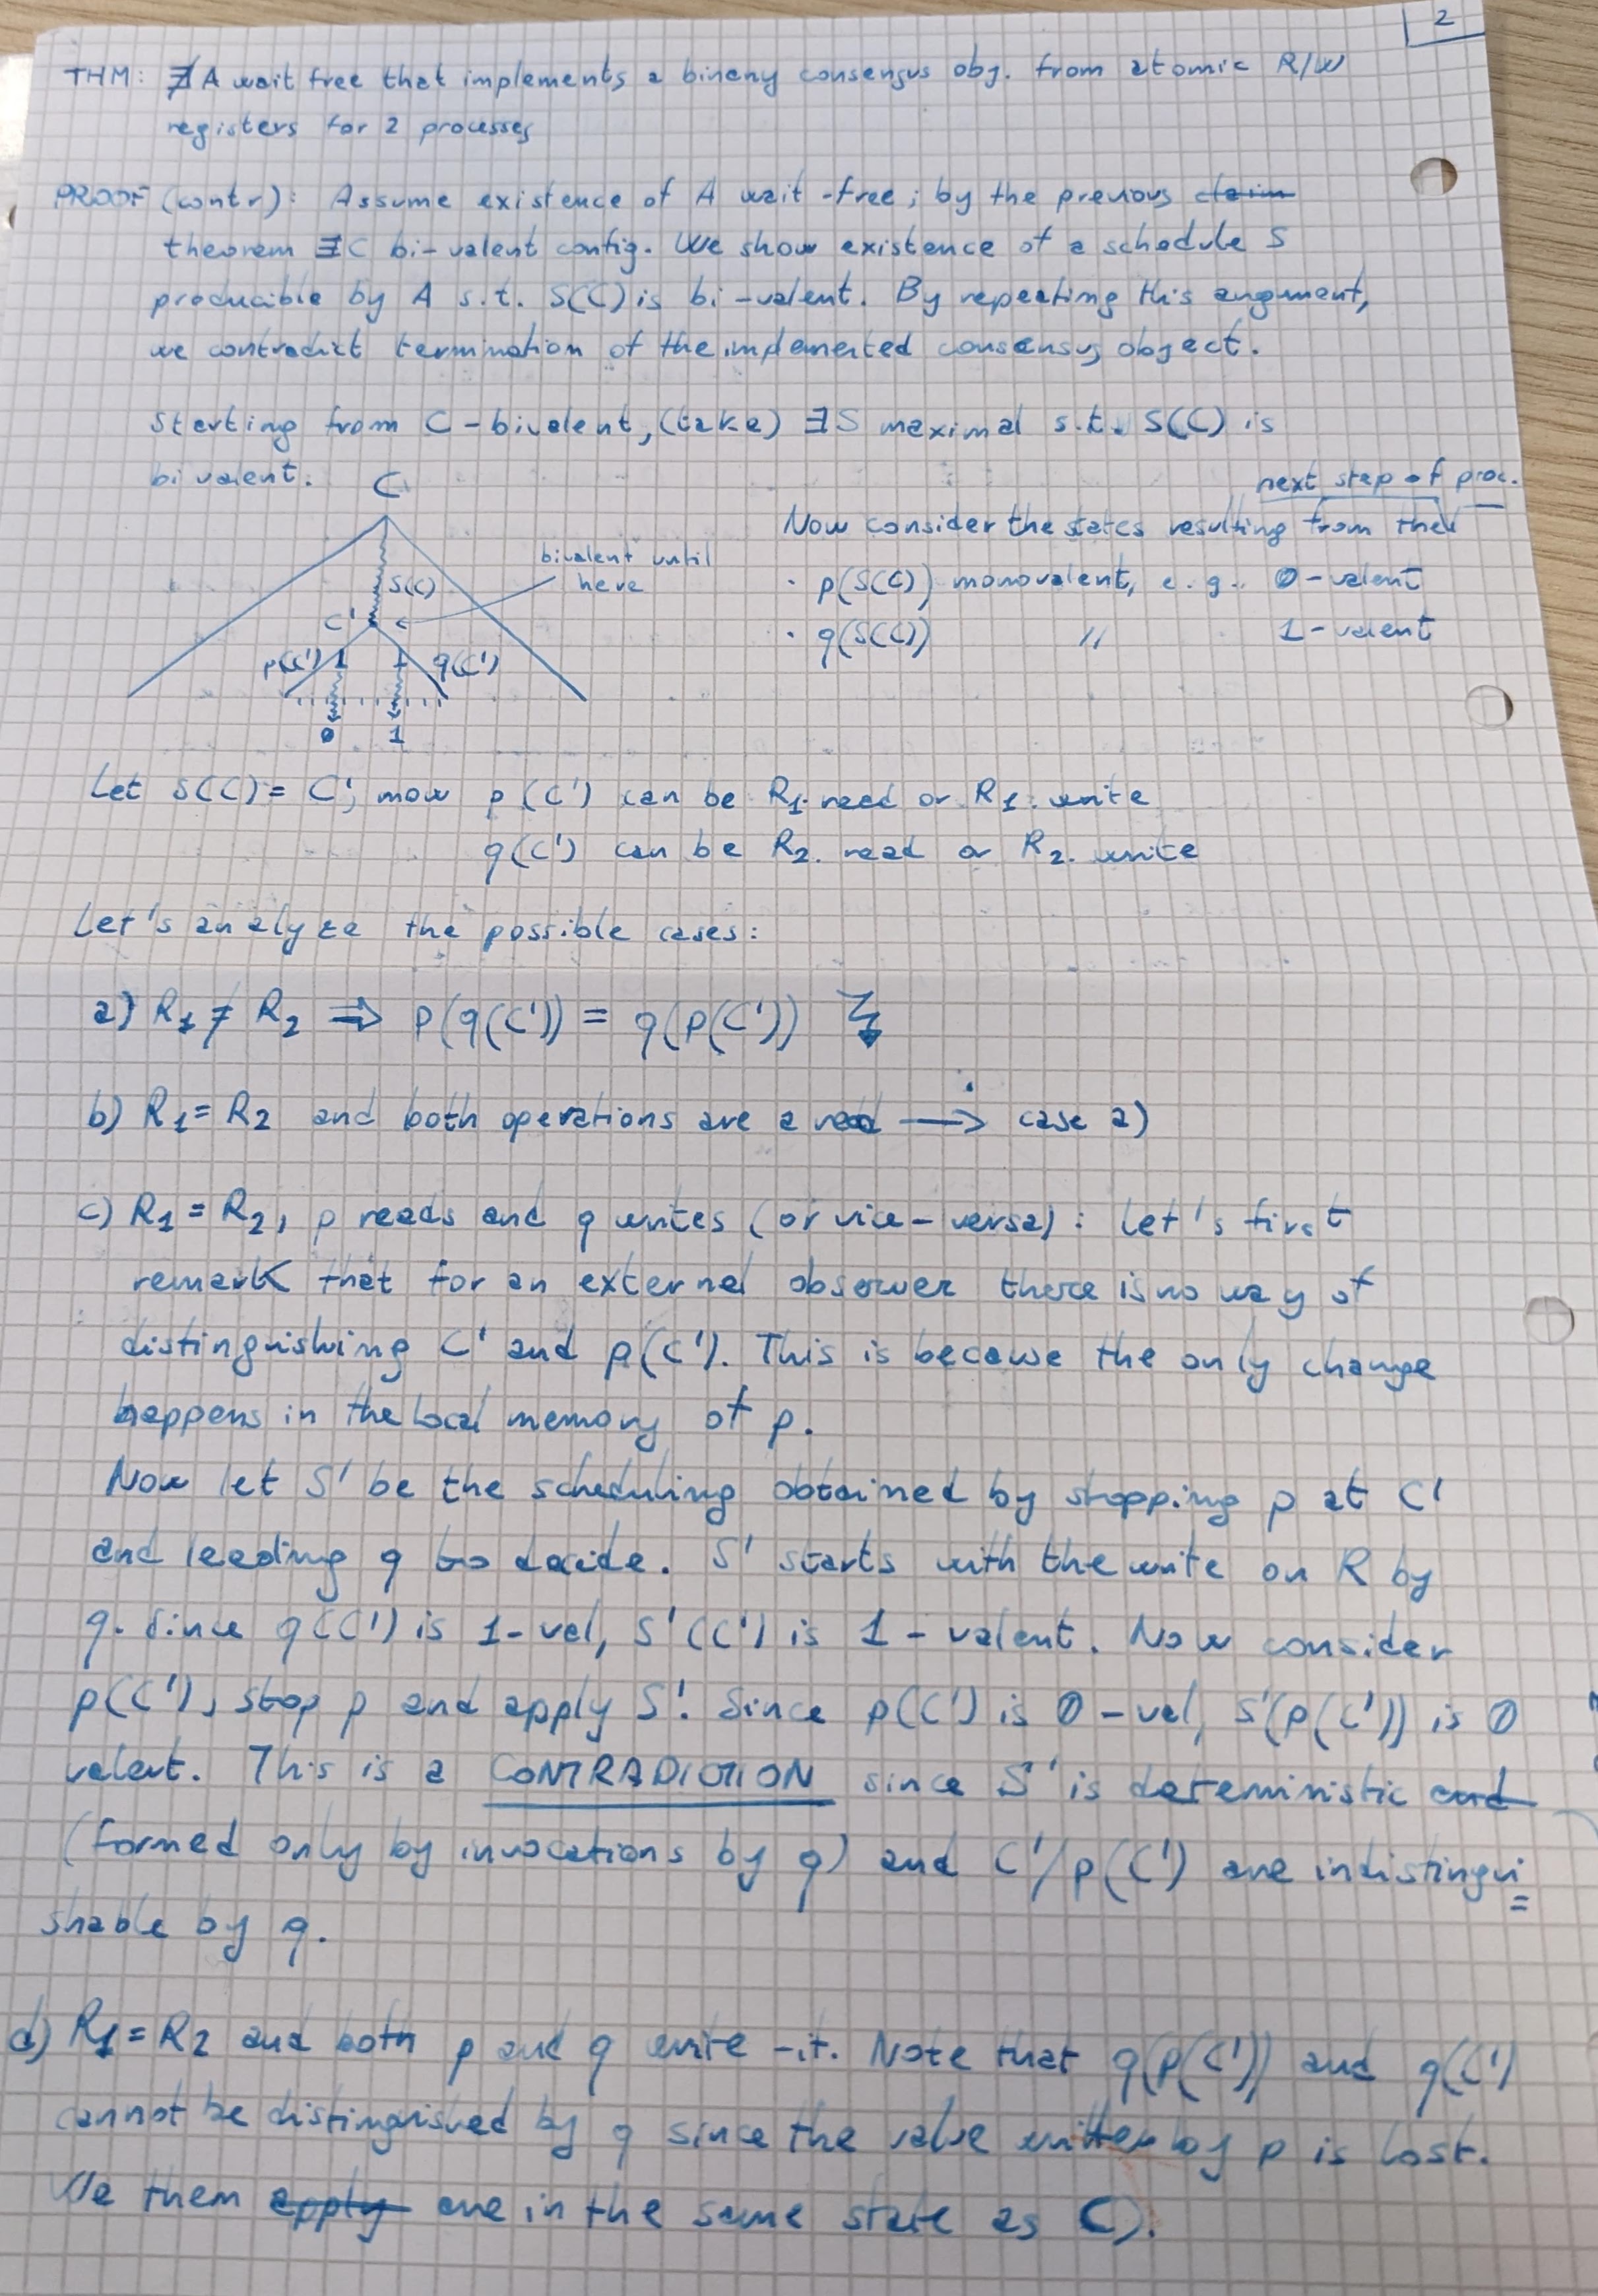 2
THM: ∄ A wait free that implements a binary consensus obj. from atomic R/W
registers for 2 processes
PROOF (contr): Assume existence of A wait-free; by the previous claim
theorem ∃C bi-valent config. We show existence of a schedule S
producible by A s.t. S(C) is bi-valent. By repeating this argument,
we contradict termination of the implemented consensus object.
Starting from C-bivalent, (take) ∃S maximal s.t. S(C) is
bivalent.
C
S(C)
bivalent until
here
C'
p(C') q(C')
0 1
next step of proc.
Now consider the states resulting from the
· p(S(C)) monovalent, e.g. 0-valent
· q(S(C)) // 1-valent
Let S(C) = C'; now p(C') can be R1.read or R1.write
q(C') can be R2.read or R2.write
Let's analyze the possible cases:
a) R1 ≠ R2 ⇒ p(q(C')) = q(p(C'))
b) R1 = R2 and both operations are a read → case a)
c) R1 = R2, p reads and q writes (or vice-versa): Let's first
remark that for an external observer there is no way of
distinguishing C' and p(C'). This is because the only change
happens in the local memory of p.
Now let S' be the scheduling obtained by stopping p at C'
and leading q to decide. S' starts with the write on R by
q. Since q(C') is 1-val, S'(C') is 1-valent. Now consider
p(C'), stop p and apply S'. Since p(C') is 0-val, S'(p(C')) is 0
valent. This is a CONTRADICTION since S' is deterministic and
(formed only by invocations by q) and C'/p(C') are indistingui=
shable by q.
d) R1 = R2 and both p and q write it. Note that q(p(C')) and q(C')
cannot be distinguished by q since the value written by p is lost.
We them apply are in the same state as C).